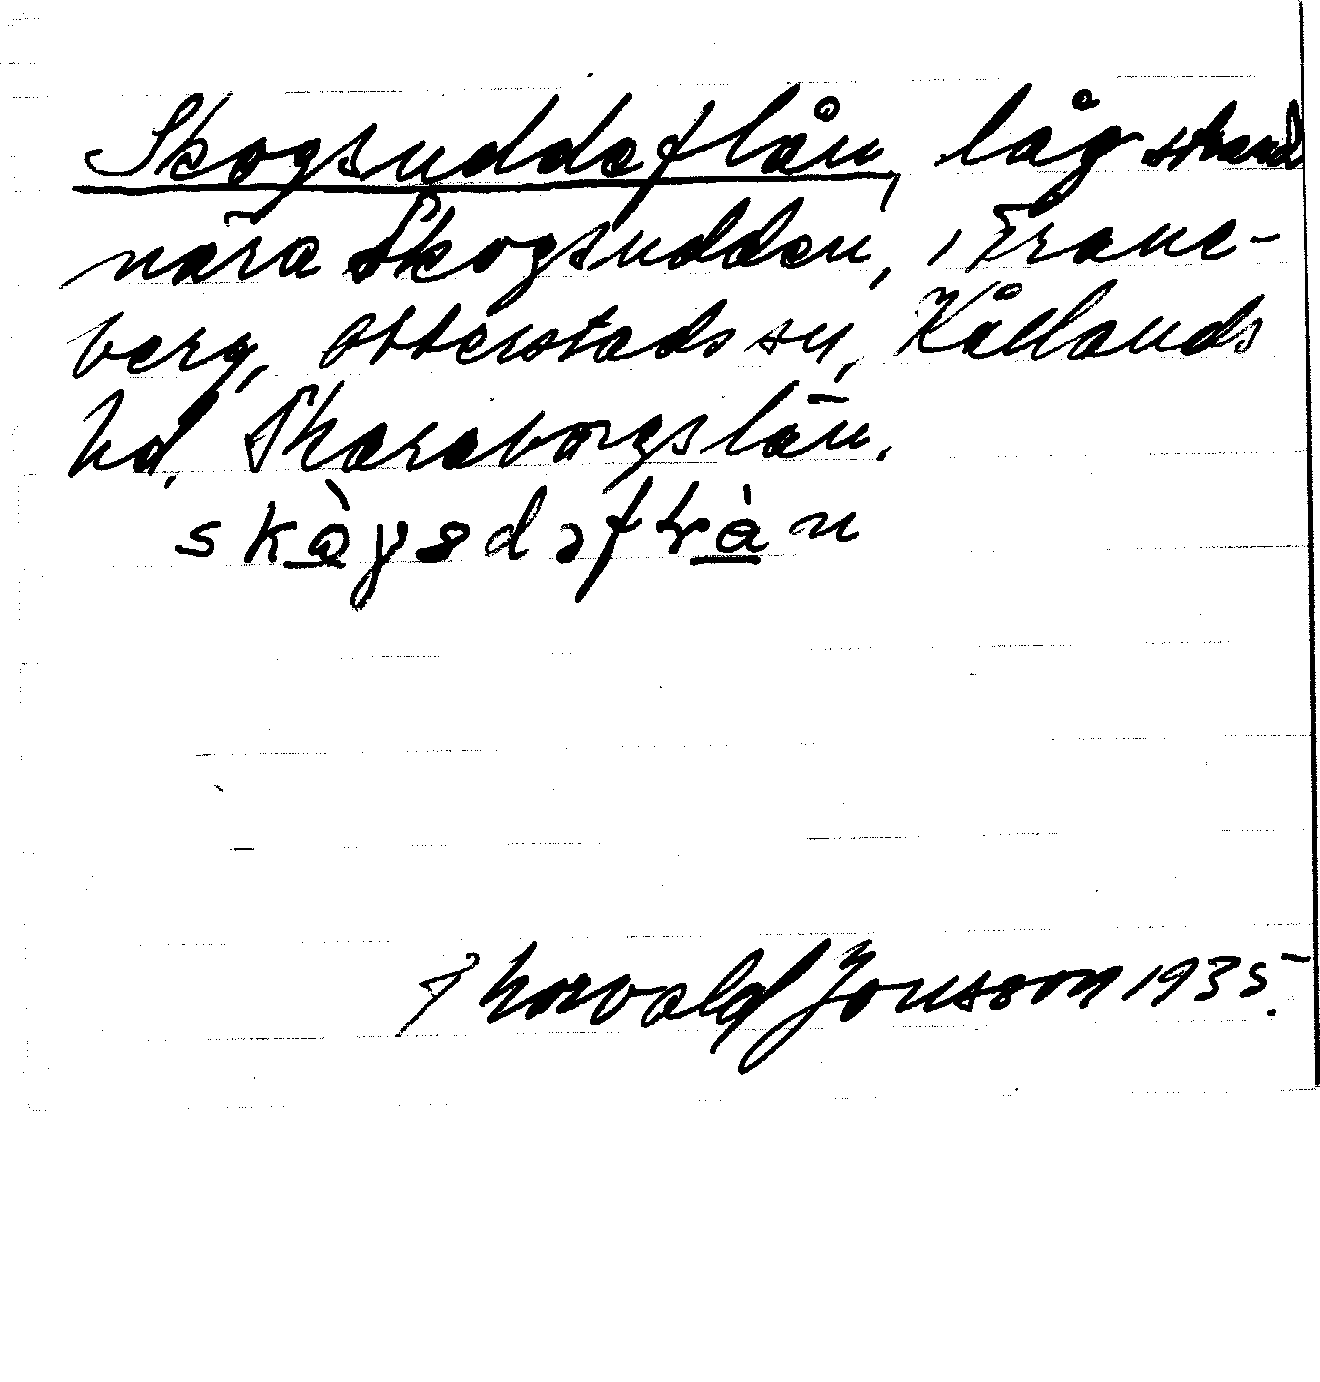 Skogsuddeflån, låg strand
nära Skogsudden, i Trane-
berg, Otterstads sn, Kållands
hd, Skaraborgs län.
Thorvald Jonsson 1935.